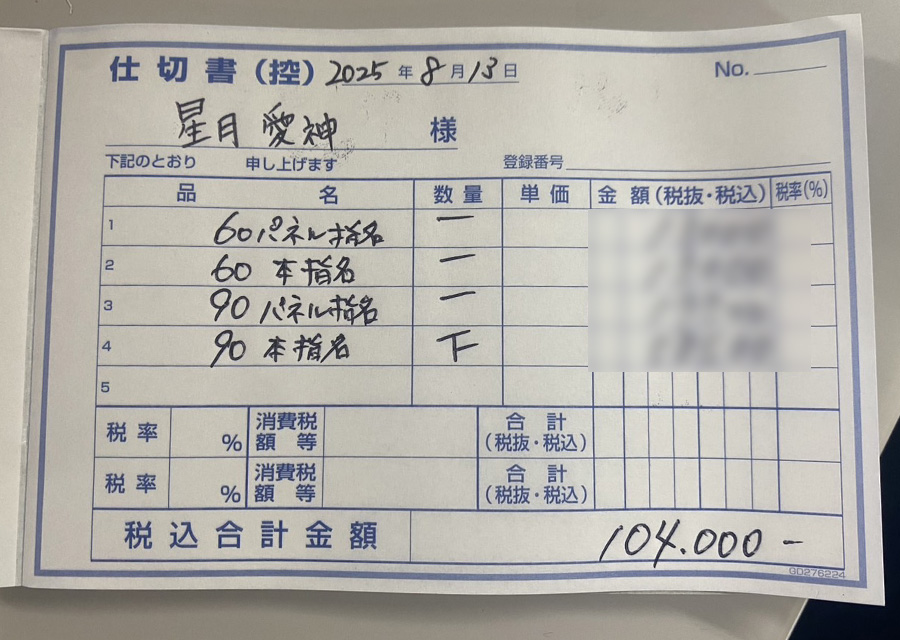 仕切書(控) 2025年8月13日 No.
星月 愛神 様
下記のとおり 申し上げます 登録番号
品名 数量 単価 金額(税抜・税込) 税率(%)
1 60パネル指名 一
2 60 本指名 一
3 90 パネル指名 一
4 90 本指名 下
5
税率 % 消費税額等 合計(税抜・税込)
税率 % 消費税額等 合計(税抜・税込)
税込合計金額 104.000-
GD276224